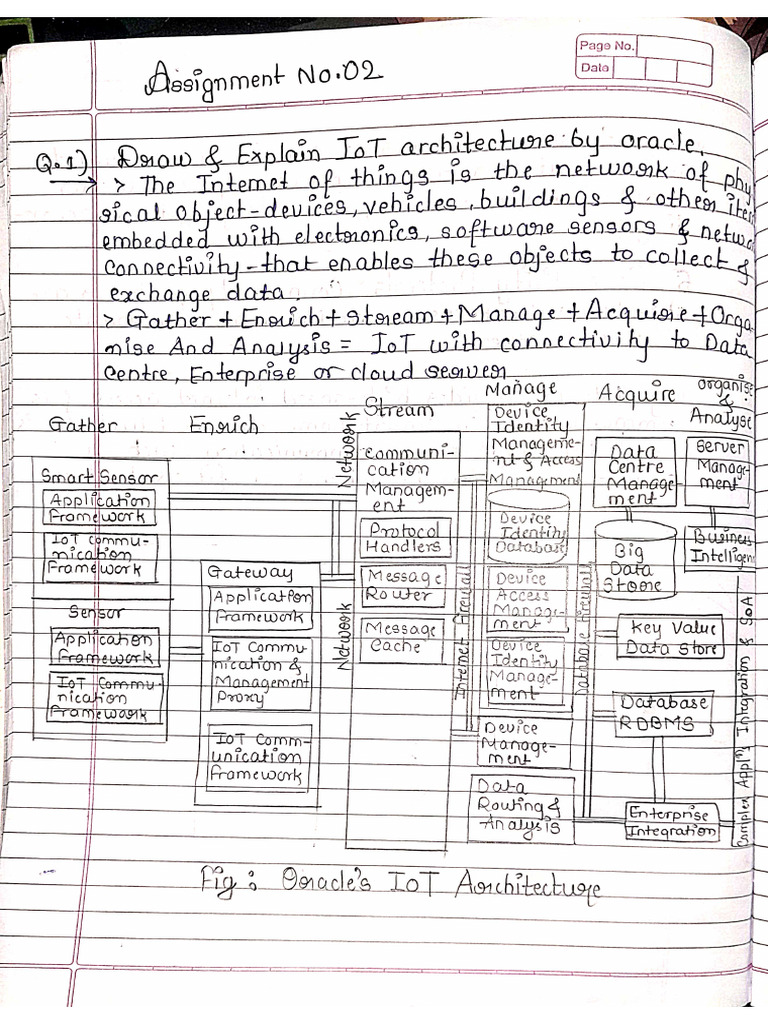 Page No.
Date
Assignment No.02
Q.1) Draw & Explain IoT architecture by oracle.
→ > The Internet of things is the network of phy
sical object-devices, vehicles, buildings & other item
embedded with electronics, software sensors & netwo
connectivity-that enables these objects to collect &
exchange data.
> Gather + Enrich + Stream + Manage + Acquire + Orga
nise And Analysis = IoT with connectivity to Data
Centre, Enterprise or cloud server
Gather
Enrich
Stream
Manage
Acquire
Organise
&
Analyse
Smart Sensor
Application
Framework
IoT commu-
nication
Framework
Sensor
Application
Framework
IoT Commu-
nication
Framework
Gateway
Application
Framework
IoT Commu-
nication &
Management
Proxy
IoT Comm-
unication
Framework
Network
Network
Communi-
cation
Managem-
ent
Protocol
Handlers
Message
Router
Message
Cache
Internet Firewall
Device
Identity
Manageme-
nt & Access
Management
Device
Identity
Database
Device
Access
Manage-
ment
Device
Identity
Manage-
ment
Device
Manage-
ment
Data
Routing &
Analysis
Database Firewall
Data
Centre
Manage-
ment
Big
Data
Store
Key Value
Data Store
Database
RDBMS
Enterprise
Integration
Server
Manage-
ment
Business
Intelligen
Complex Appl^n Integration & SOA
Fig : Oracle's IoT Architecture